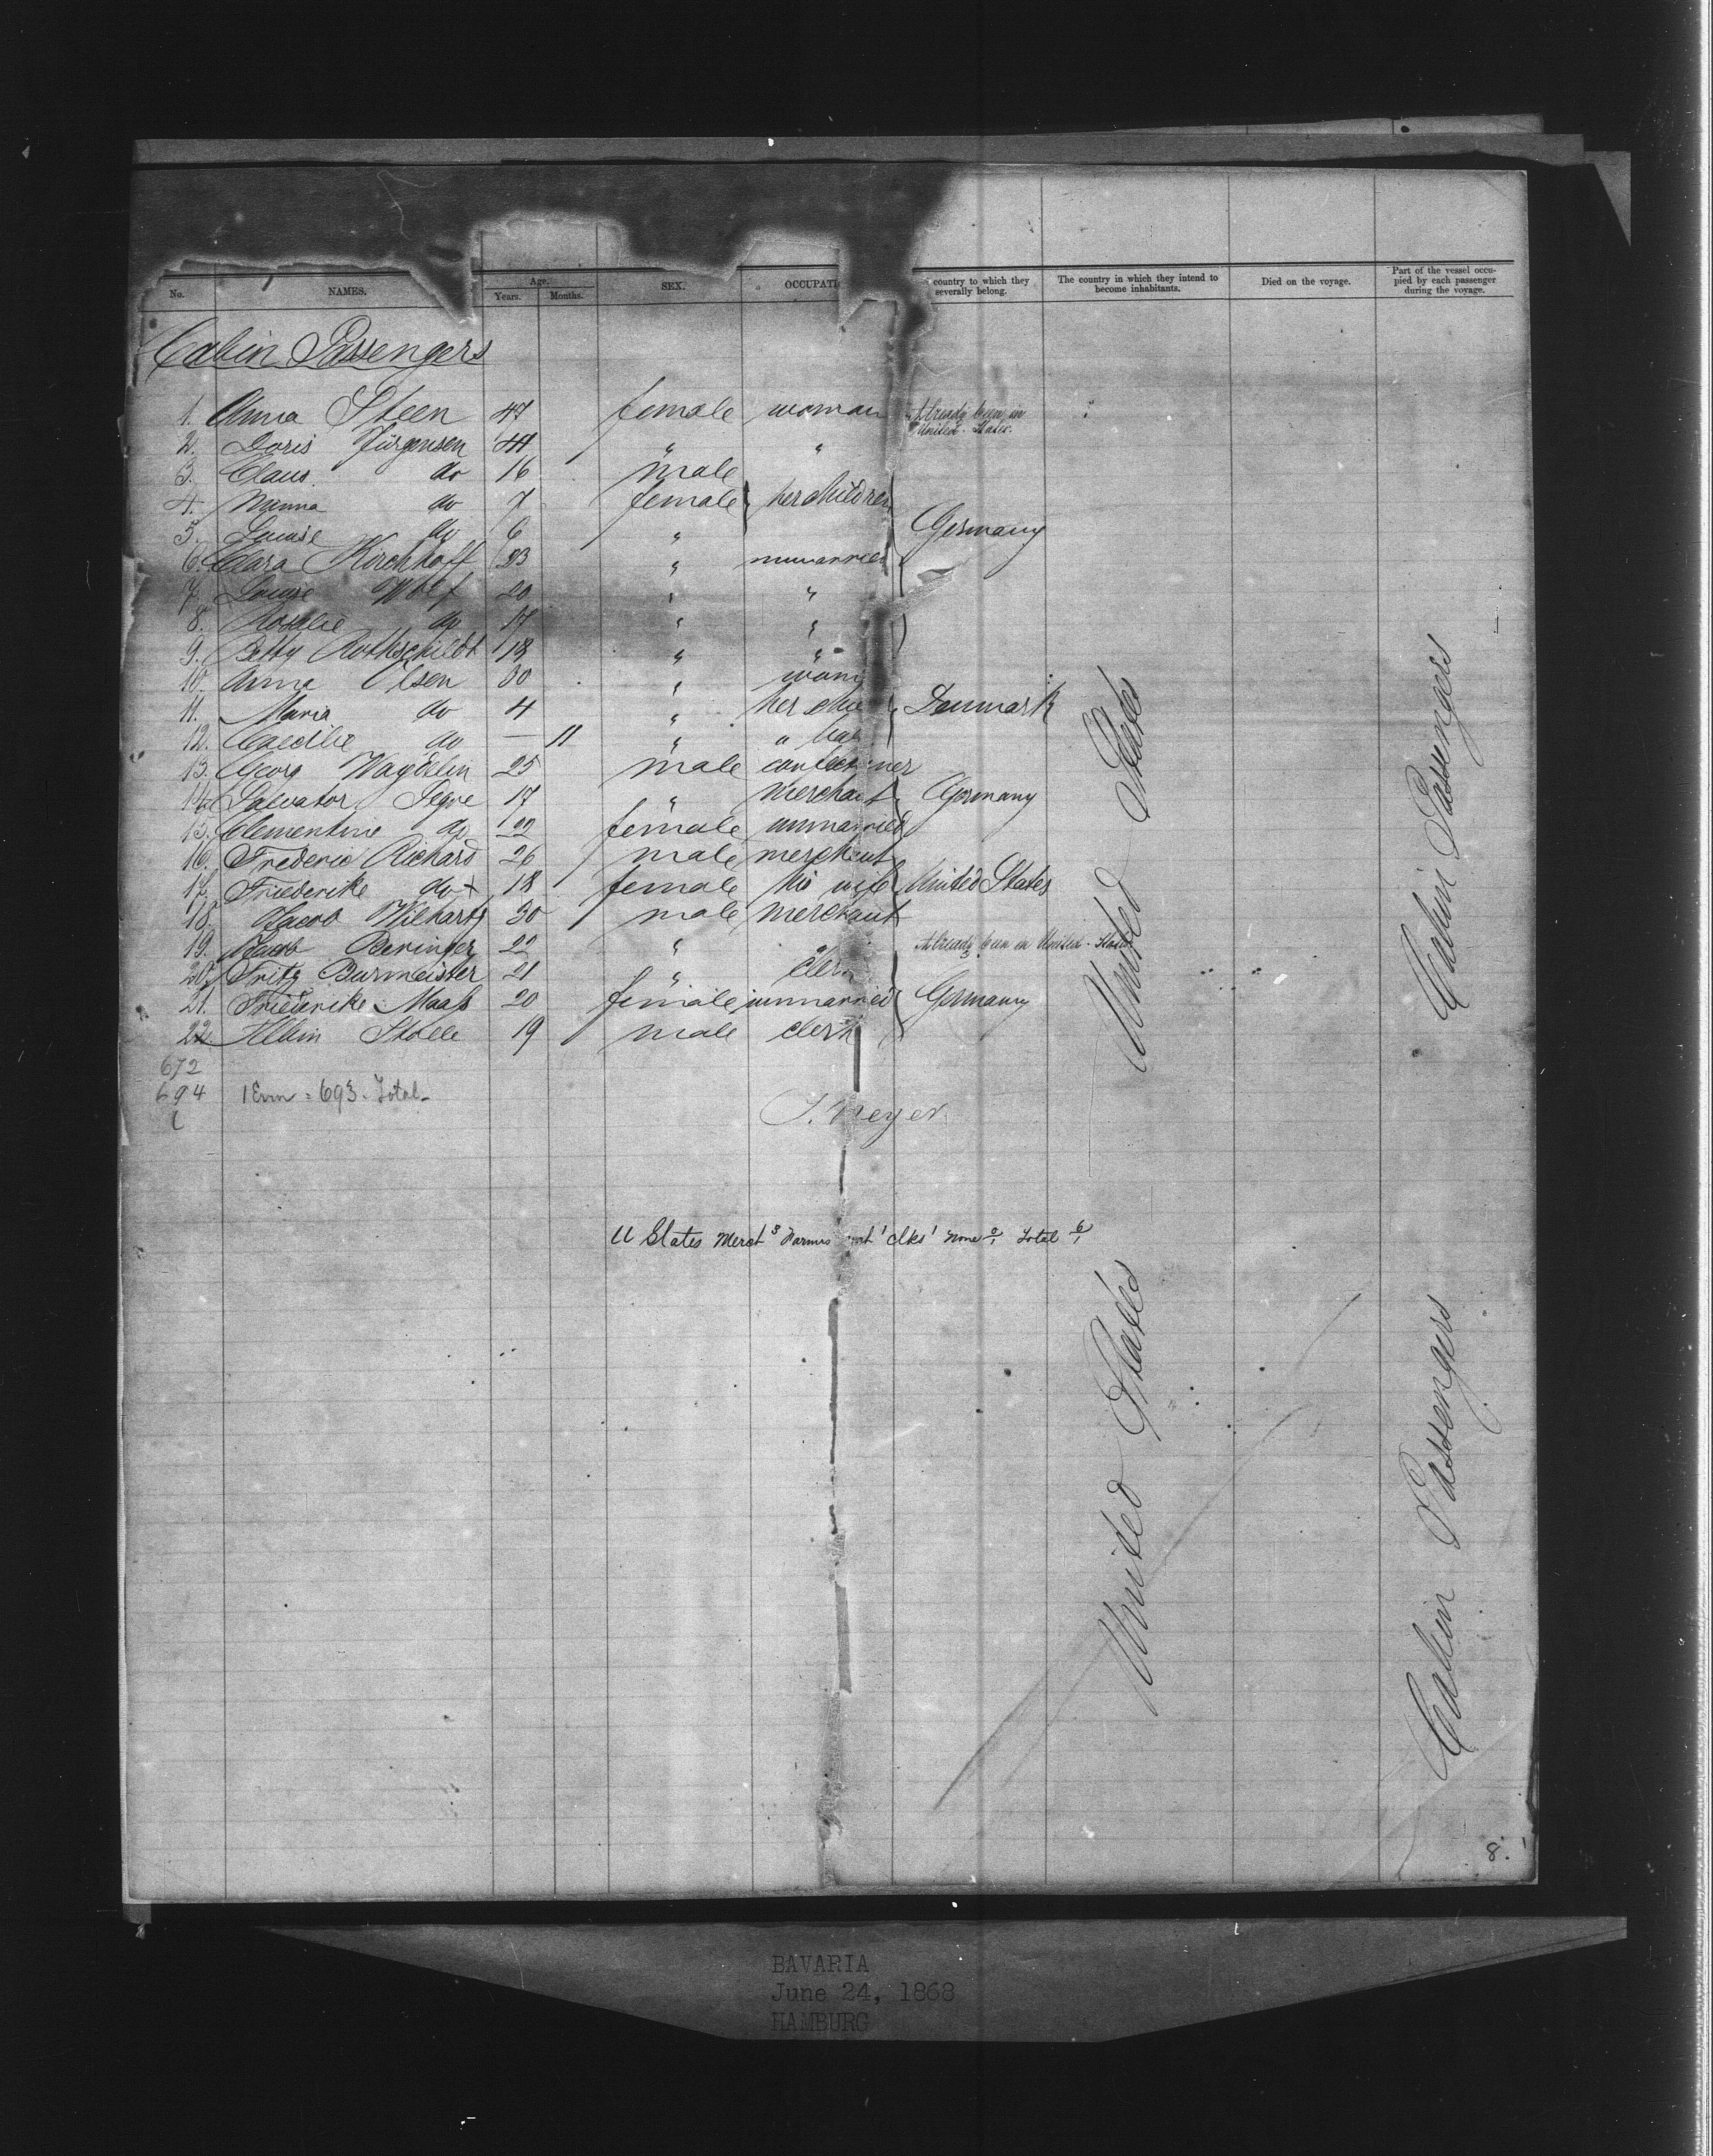 No. NAMES. Age. Years. Months. SEX. OCCUPATI country to which they severally belong. The country in which they intend to become inhabitants. Died on the voyage. Part of the vessel occupied by each passenger during the voyage.
Cabin Passengers
1. Anna Steen 47 female woman Already been in United-States.
2. Doris Jürgensen 44 " "
3. Claus do 16 male
4. Minna do 7 female her children
5. Louise do 6 " Germany
6. Clara Kirchhoff 23 " unmarried
7. Louise Wolf 20 " "
8. Rosalie do 17 " "
9. Betty Rothschildt 18 " "
10. Anna Olsen 30 "
11. Maria do 4 " her Denmark
12. Caecilie do — 11 " a
13. Georg 25 male confectioner
14. Salvator Segre 17 " merchant Germany
15. Clementine do 22 female unmarried
16. Frederic Richard 26 male merchant
17. Friederike do + 18 female his wife United States
18. Jacob Wilhartz 30 male merchant
19. Jacob Beringer 22 " Already been in United-States
20. Fritz Burmeister 21 " clerk
21. Friederike Maaß 20 female unmarried Germany
22. Albin Stolle 19 male clerk
672
694 1 Erm = 693. Total-
United States
Cabin Passengers
J. Meyer
U States Merch 3 Farmrs 1 Clks 1 None Total 6
United States
Cabin Passengers
8.
BAVARIA
June 24, 1868
HAMBURG